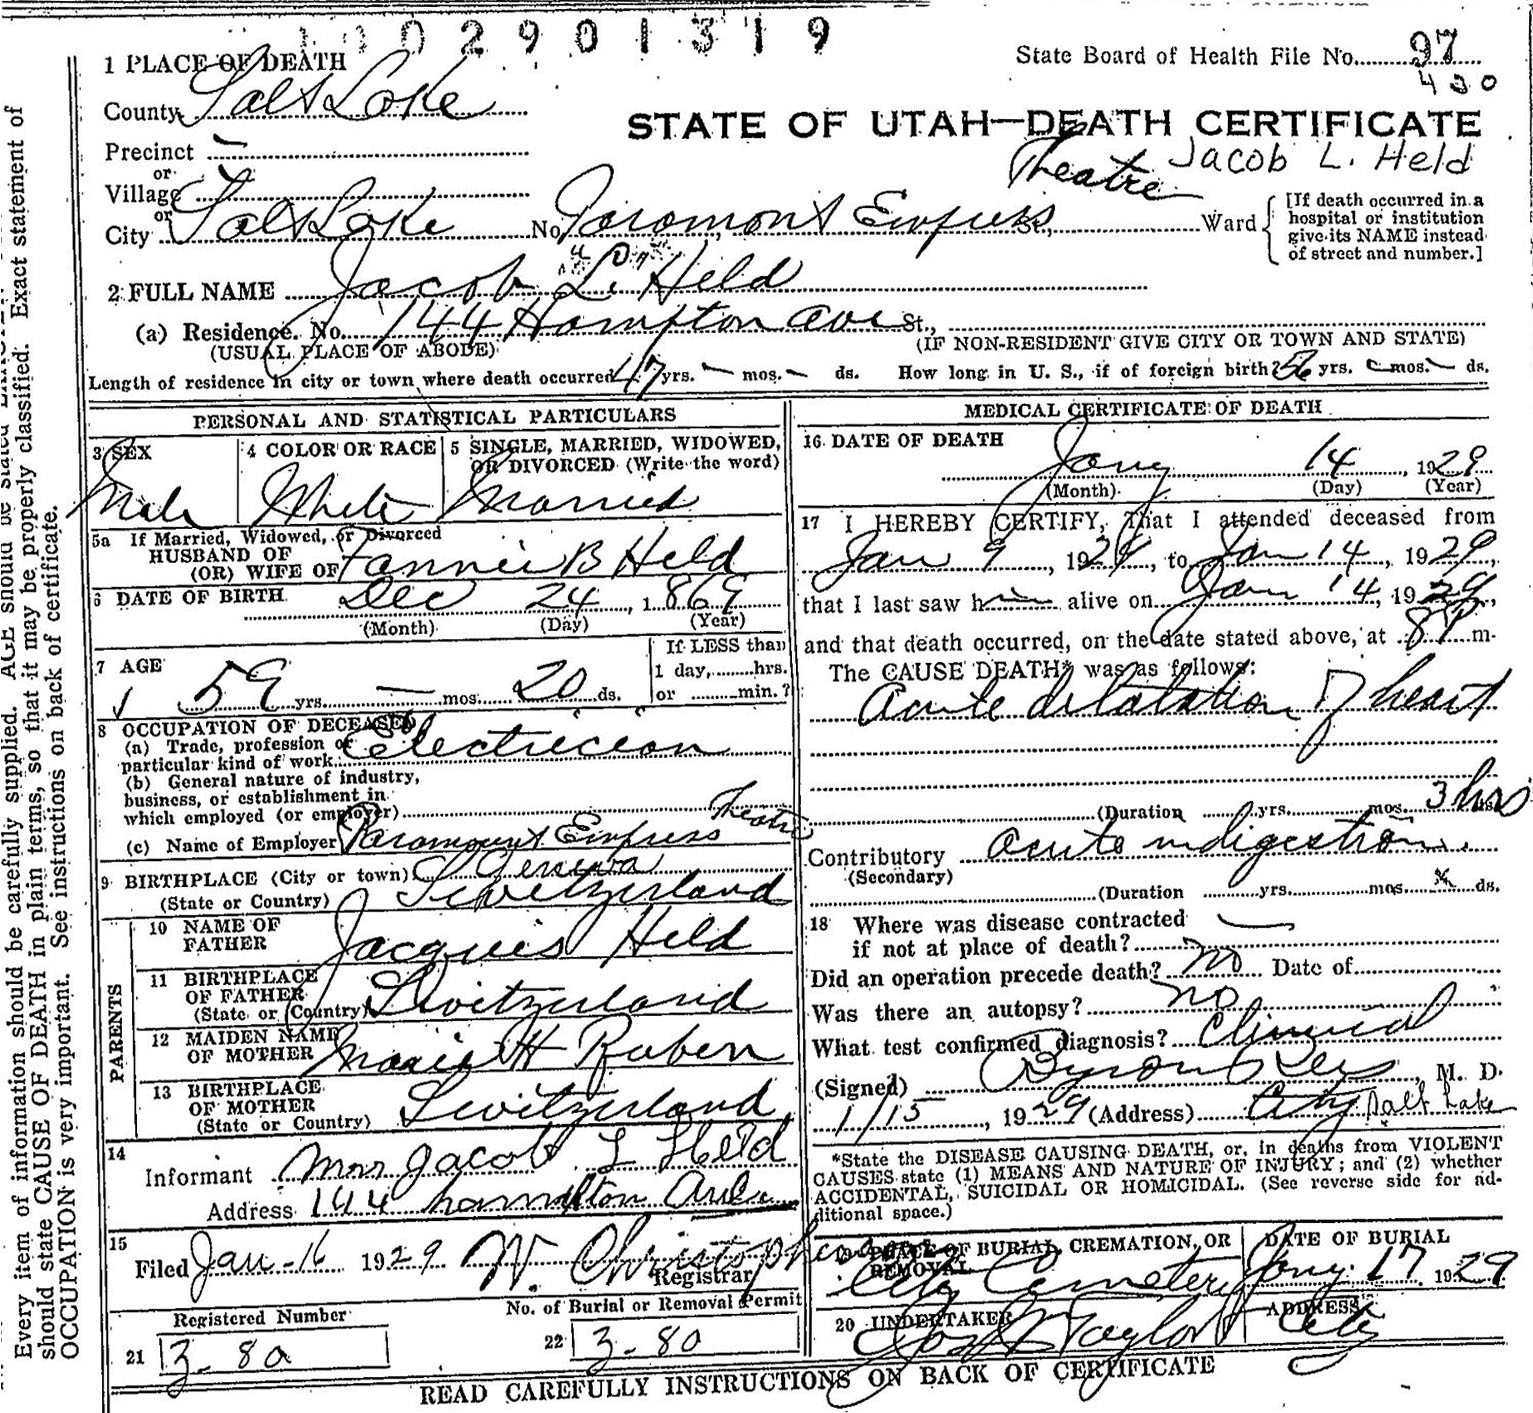 1002901319
1 PLACE OF DEATH
State Board of Health File No. 97
430
County Salt Lake
STATE OF UTAH—DEATH CERTIFICATE
Precinct —
Theatre Jacob L. Held
or
Village
or
City Salt Lake No. Paramont Empress St., Ward
[If death occurred in a
hospital or institution
give its NAME instead
of street and number.]
2 FULL NAME Jacob L. Held
(a) Residence. No. 144 Hampton Ave St.,
(USUAL PLACE OF ABODE) (IF NON-RESIDENT GIVE CITY OR TOWN AND STATE)
Length of residence in city or town where death occurred 47 yrs. — mos. — ds. How long in U. S., if of foreign birth? 56 yrs. — mos. — ds.
PERSONAL AND STATISTICAL PARTICULARS
3 SEX
Male
4 COLOR OR RACE
White
5 SINGLE, MARRIED, WIDOWED,
OR DIVORCED (Write the word)
Married
5a If Married, Widowed, or Divorced
HUSBAND OF
(OR) WIFE OF Fannie B Held
6 DATE OF BIRTH Dec 24, 1869
(Month) (Day) (Year)
7 AGE
59 yrs. — mos. 20 ds.
If LESS than
1 day, hrs.
or min.?
8 OCCUPATION OF DECEASED
(a) Trade, profession or
particular kind of work Electricion
(b) General nature of industry,
business, or establishment in
which employed (or employer)
(c) Name of Employer Paramount Empress Theatre
9 BIRTHPLACE (City or town) Geneva
(State or Country) Switzerland
PARENTS
10 NAME OF
FATHER Jacques Held
11 BIRTHPLACE
OF FATHER
(State or Country) Switzerland
12 MAIDEN NAME
OF MOTHER Marie H Ruben
13 BIRTHPLACE
OF MOTHER
(State or Country) Switzerland
14
Informant Mrs Jacob L Held
Address 144 hamilton Ave
15
Filed Jan-16 1929 W. Christophersen
Registrar
Registered Number No. of Burial or Removal Permit
21 3-80 22 3-80
MEDICAL CERTIFICATE OF DEATH
16 DATE OF DEATH
Jany 14, 1929
(Month) (Day) (Year)
17 I HEREBY CERTIFY, That I attended deceased from
Jan 9, 1929, to Jan 14, 1929,
that I last saw him alive on Jan 14, 1929,
and that death occurred, on the date stated above, at 8 P m.
The CAUSE DEATH* was as follows:
Acute dilatation of heart
(Duration yrs. mos. 3 hrs ds.
Contributory acute indigestion.
(Secondary)
(Duration yrs. mos. ds.
18 Where was disease contracted
if not at place of death? —
Did an operation precede death? no Date of
Was there an autopsy? no
What test confirmed diagnosis? Clinical
(Signed) Byron Rees, M. D.
1/15, 1929 (Address) City Salt Lake
*State the DISEASE CAUSING DEATH, or, in deaths from VIOLENT
CAUSES state (1) MEANS AND NATURE OF INJURY; and (2) whether
ACCIDENTAL, SUICIDAL OR HOMICIDAL. (See reverse side for ad-
ditional space.)
19 PLACE OF BURIAL, CREMATION, OR
REMOVAL
City Cemetery
DATE OF BURIAL
Jany. 17 1929
20 UNDERTAKER
Jos Wm Taylor
ADDRESS
City
READ CAREFULLY INSTRUCTIONS ON BACK OF CERTIFICATE
Every item of information should be carefully supplied. AGE should be stated Exact statement of
should state CAUSE OF DEATH in plain terms, so that it may be properly classified.
OCCUPATION is very important. See instructions on back of certificate.